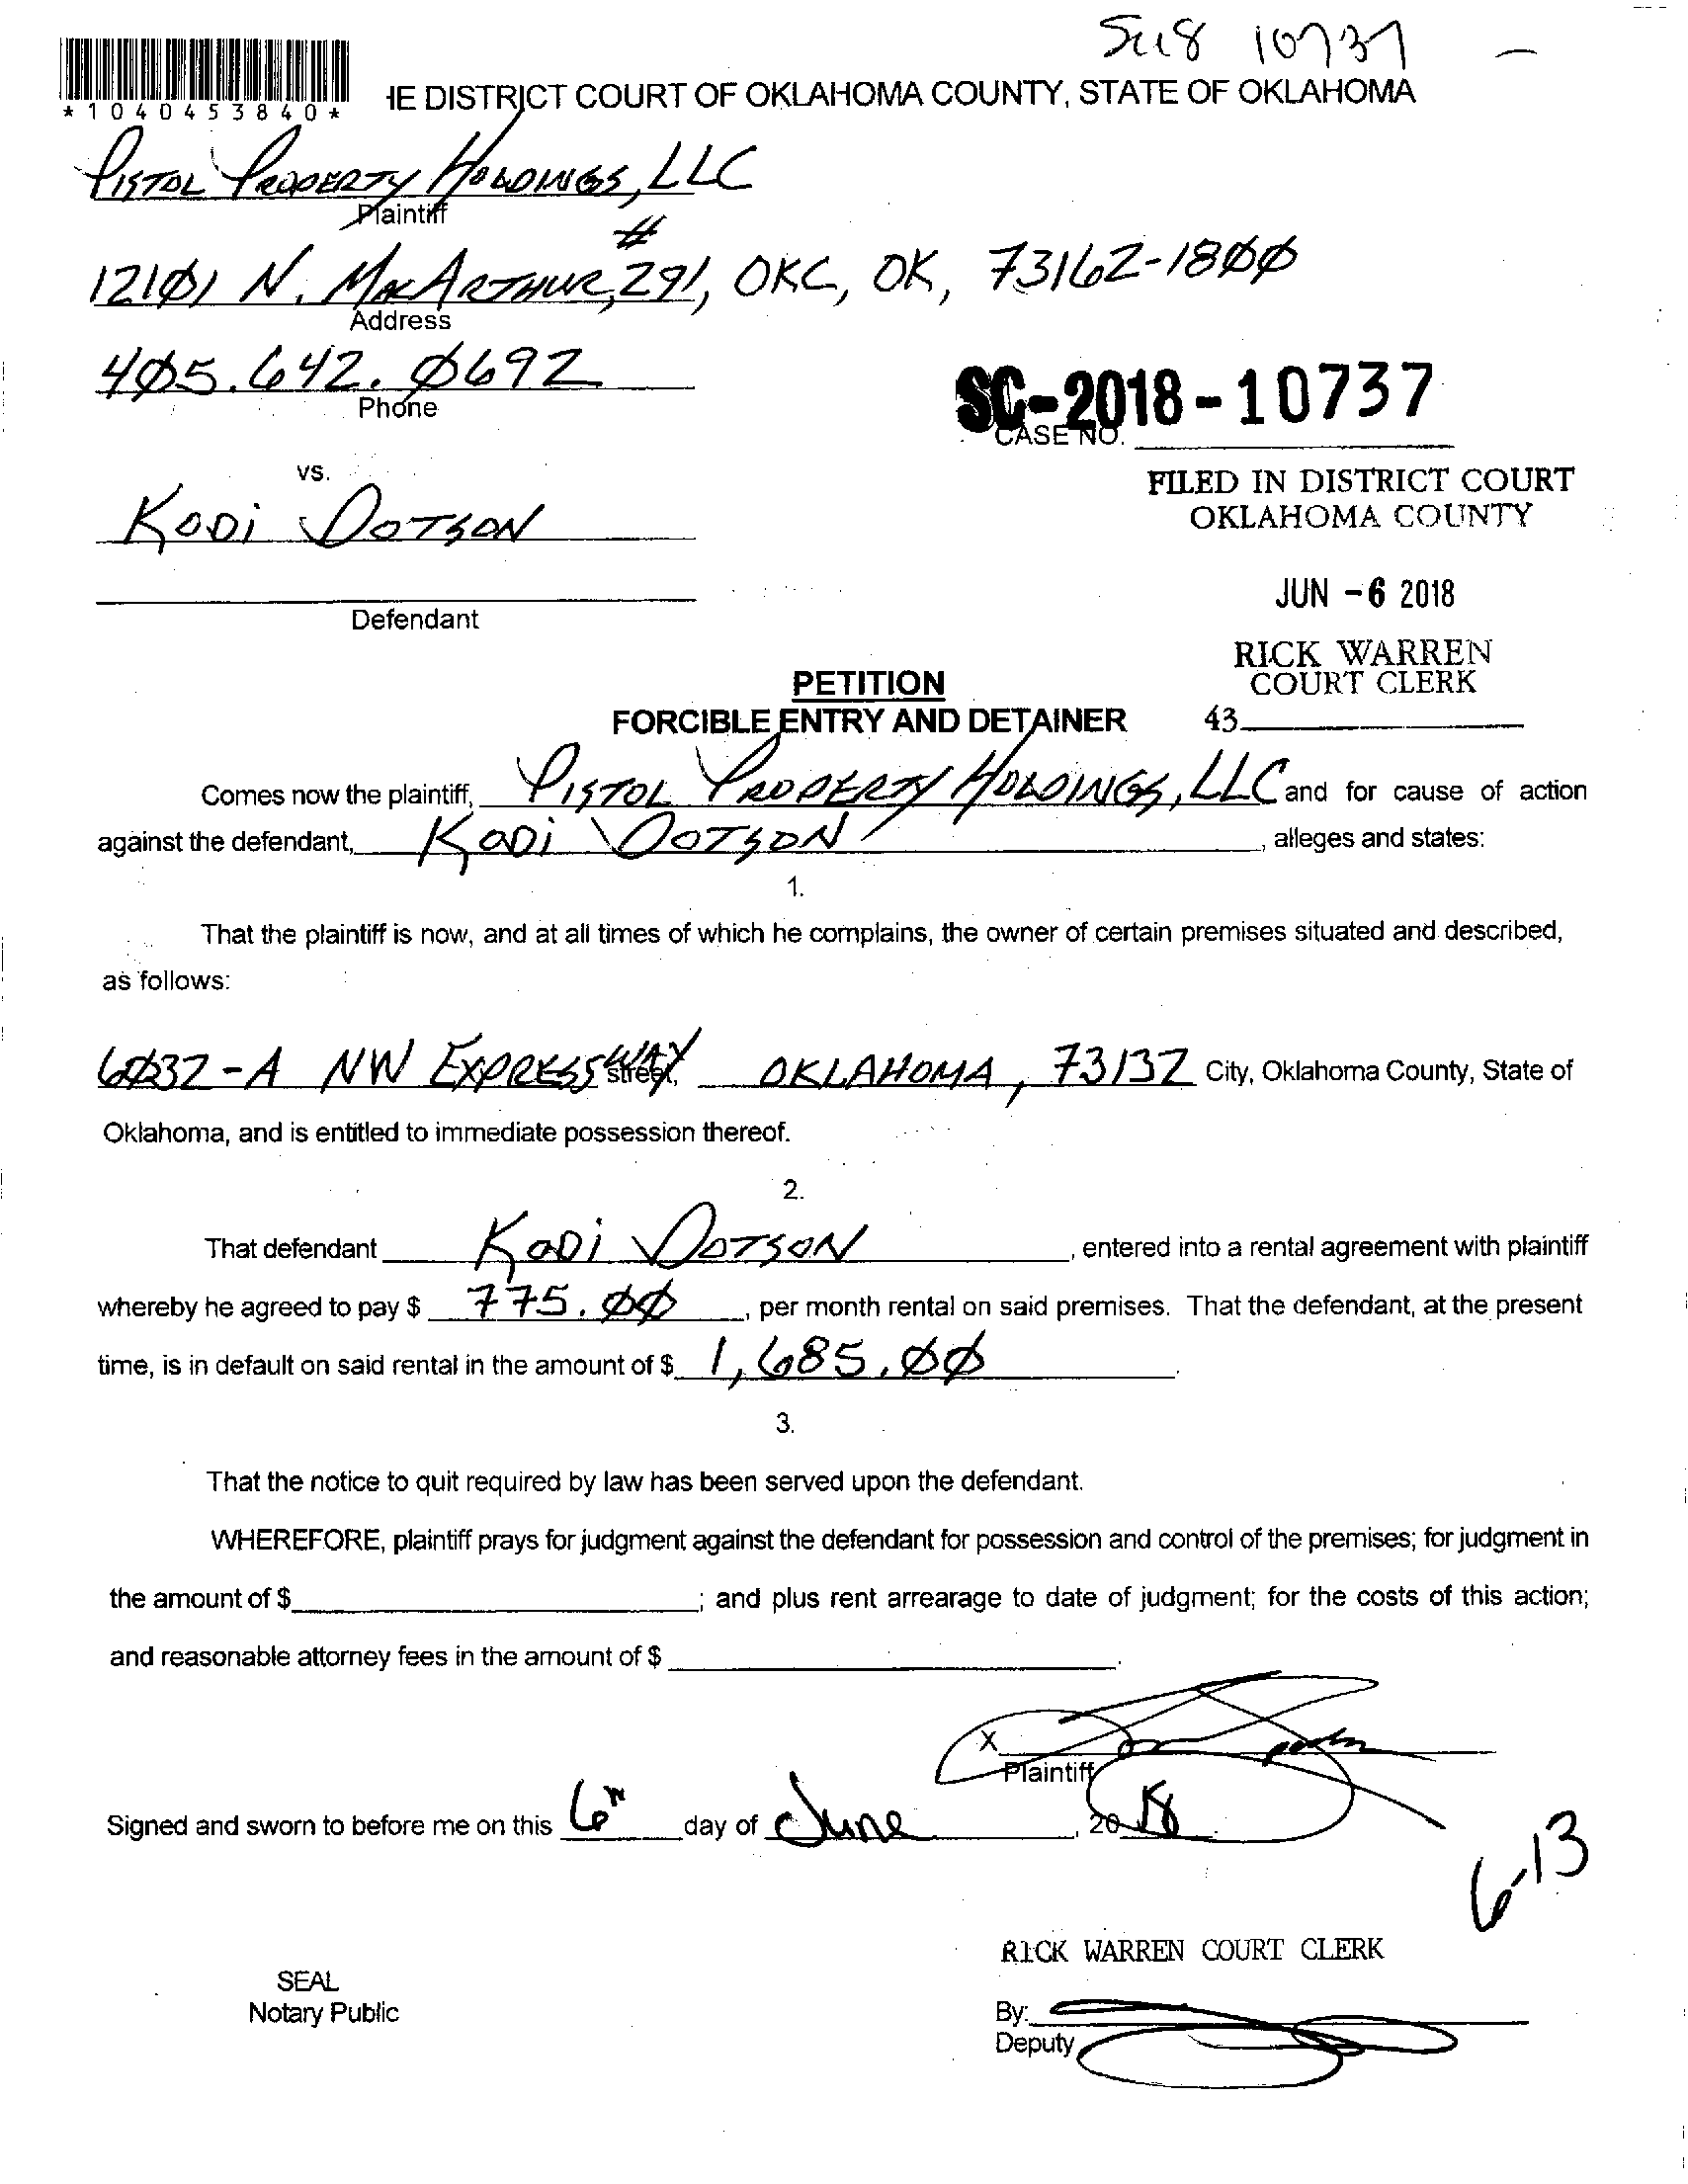 10737
*1040453840*
IE DISTRICT COURT OF OKLAHOMA COUNTY, STATE OF OKLAHOMA
PISTOL PROPERTY HOLDINGS, LLC
Plaintiff
#
12101 N. MACARTHUR, 291, OKC, OK, 73162-1800
Address
405.642.0692
Phone
SC-2018-10737
CASE NO.
vs.
FILED IN DISTRICT COURT
OKLAHOMA COUNTY
KODI DOTSON
JUN -6 2018
Defendant
RICK WARREN
COURT CLERK
PETITION
43
FORCIBLE ENTRY AND DETAINER
Comes now the plaintiff, PISTOL PROPERTY HOLDINGS, LLC and for cause of action
against the defendant, KODI DOTSON, alleges and states:
1.
That the plaintiff is now, and at all times of which he complains, the owner of certain premises situated and described,
as follows:
6032-A NW EXPRESSWAY street, OKLAHOMA, 73132 City, Oklahoma County, State of
Oklahoma, and is entitled to immediate possession thereof.
2.
That defendant KODI DOTSON, entered into a rental agreement with plaintiff
whereby he agreed to pay $ 775.00, per month rental on said premises. That the defendant, at the present
time, is in default on said rental in the amount of $ 1,685.00.
3.
That the notice to quit required by law has been served upon the defendant.
WHEREFORE, plaintiff prays for judgment against the defendant for possession and control of the premises; for judgment in
the amount of $ ; and plus rent arrearage to date of judgment; for the costs of this action;
and reasonable attorney fees in the amount of $ .
X
Plaintiff
Signed and sworn to before me on this 6th day of June, 2018.
6-13
RICK WARREN COURT CLERK
SEAL
Notary Public
By:
Deputy